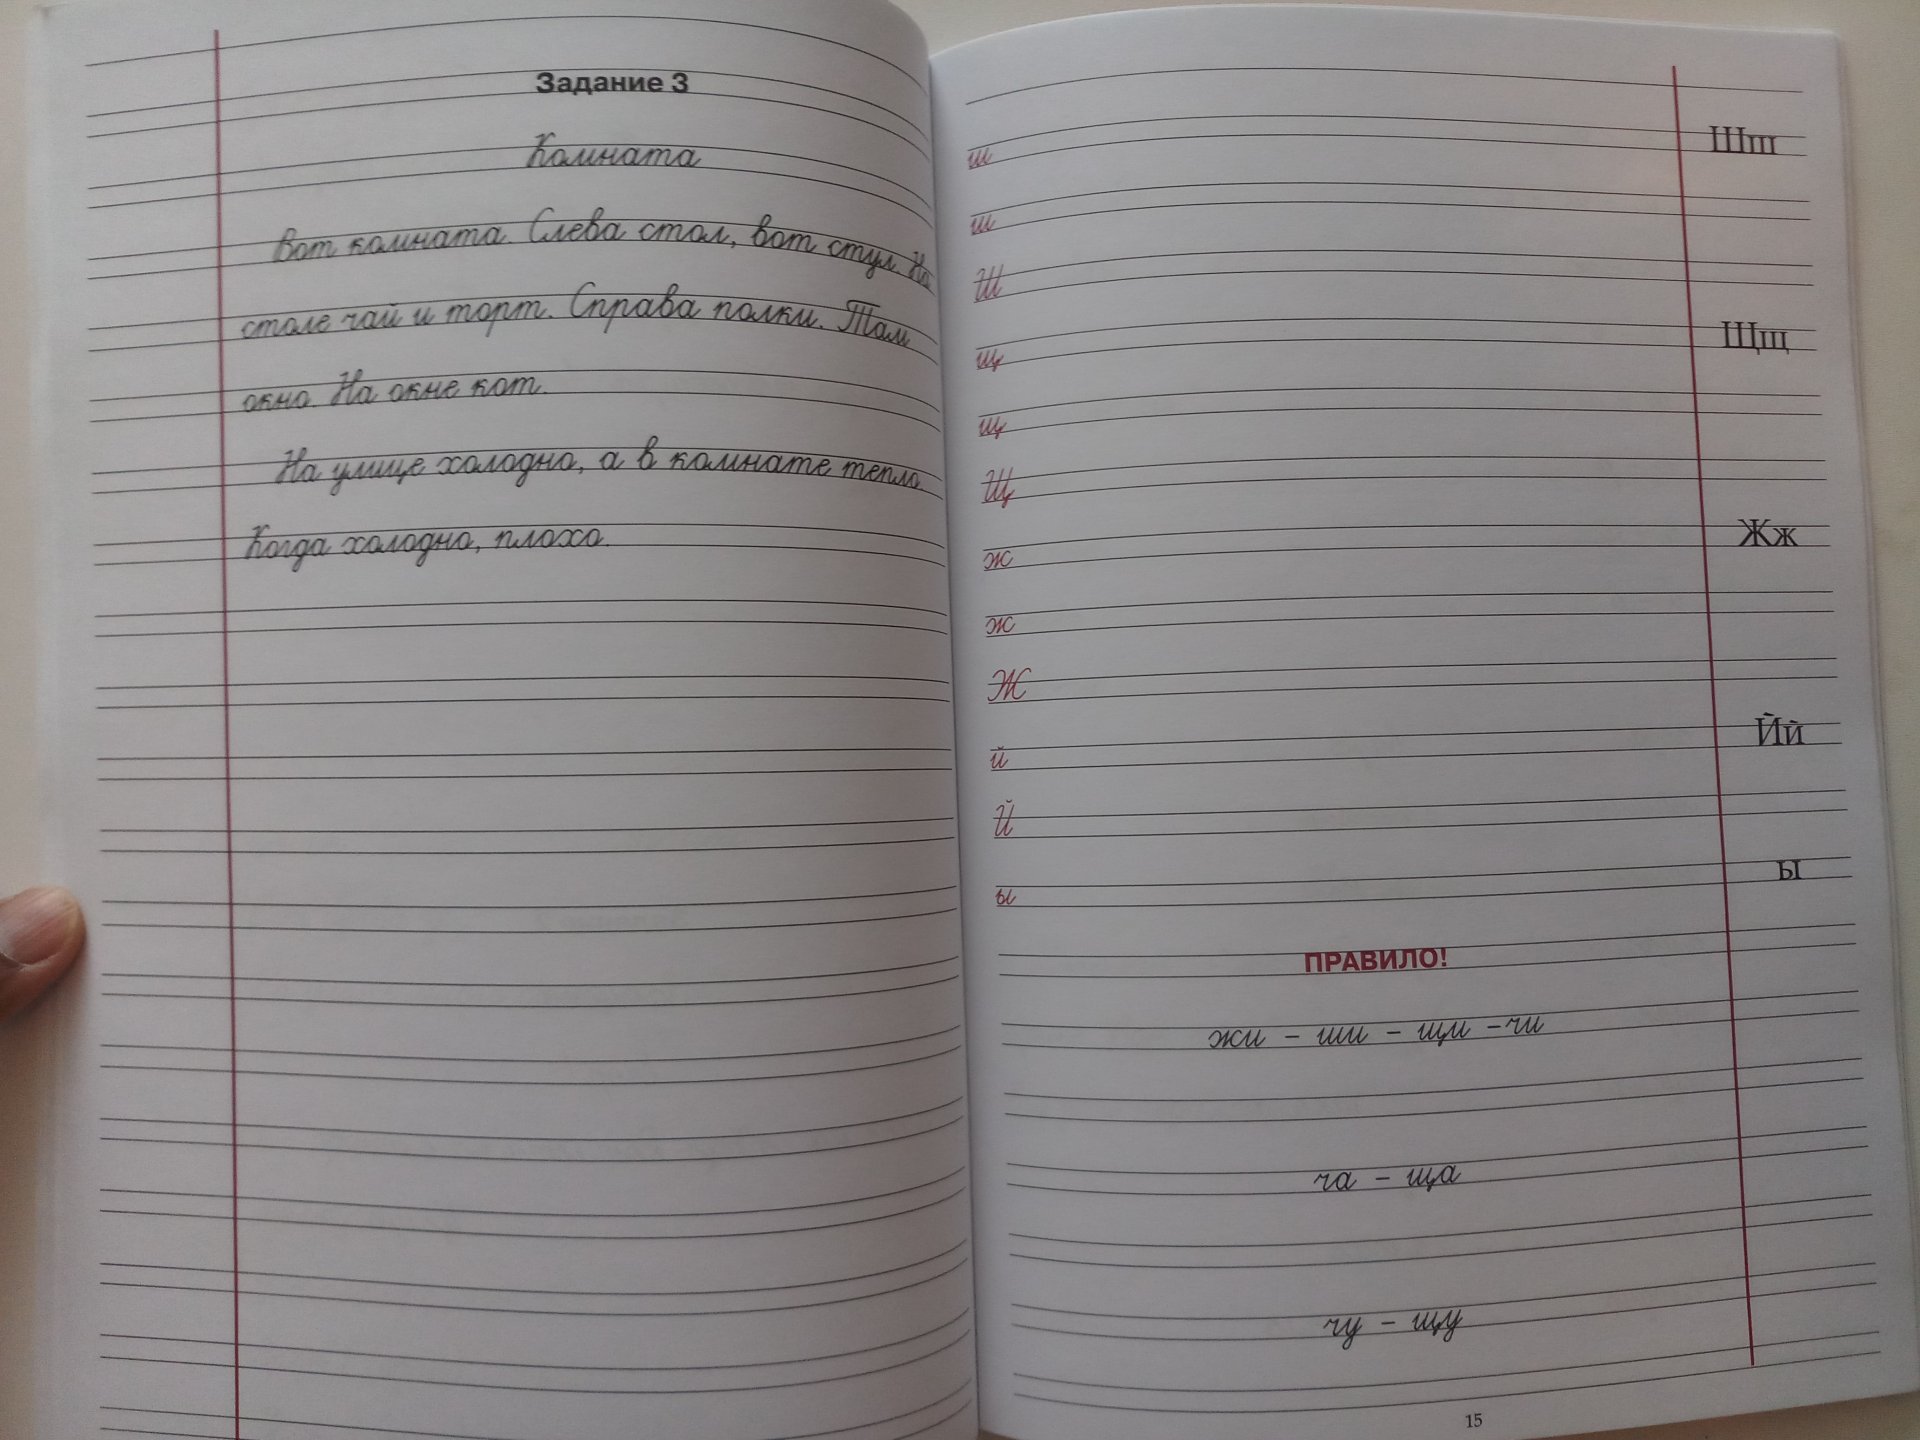 Задание 3
Комната
Вот комната. Слева стол, вот стул. На
столе чай и торт. Справа полки. Там
окно. На окне кот.
На улице холодно, а в комнате тепло.
Когда холодно, плохо.
ш
Шш
ш
Ш
щ
Щщ
щ
Щ
ж
Жж
ж
Ж
й
Йй
Й
ы
ы
ПРАВИЛО!
жи – ши – щи – чи
ча – ща
чу – щу
15